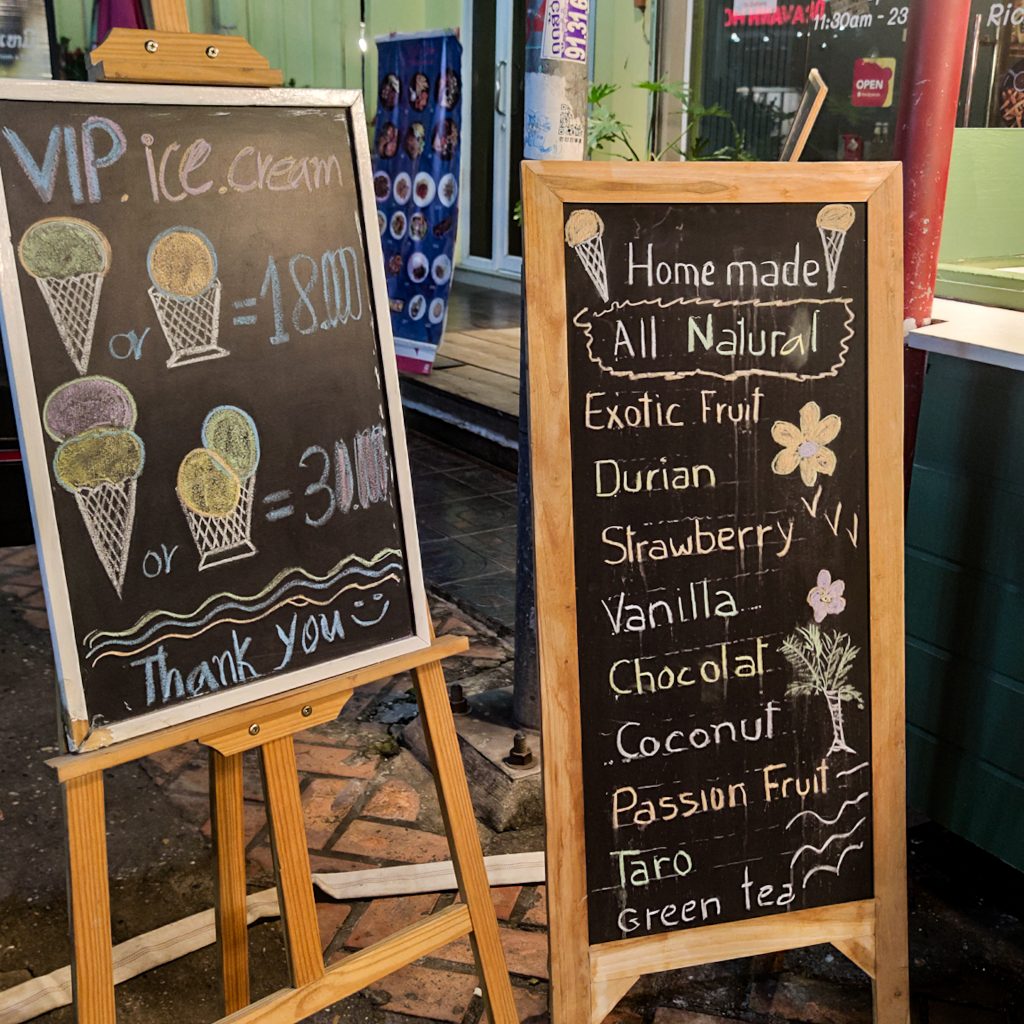 VIP. ice. cream
or = 18.000
or = 30.000
Thank you
Home made
All Natural
Exotic Fruit
Durian
Strawberry
Vanilla
Chocolat
Coconut
Passion Fruit
Taro
Green tea
11:30am - 23
OPEN
91.316